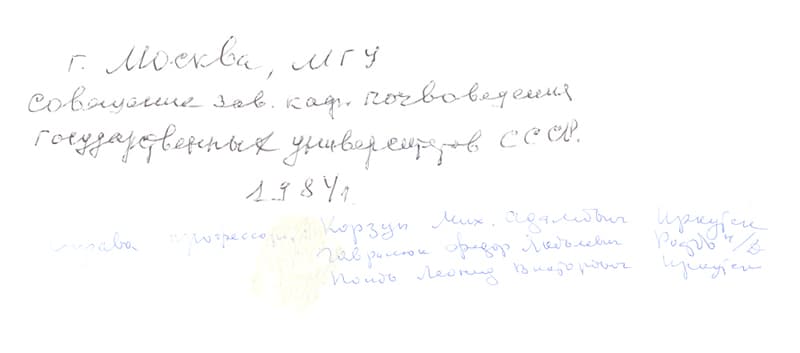 г. Москва, МГУ
Совещание зав. каф. почвоведения
государственных университетов СССР.
1984 г.
справа профессора: Корзун Мих. Адамович Иркутск
Гаврилюк Федор Яковлевич Ростов н/Д
Леонид Викторович Иркутск